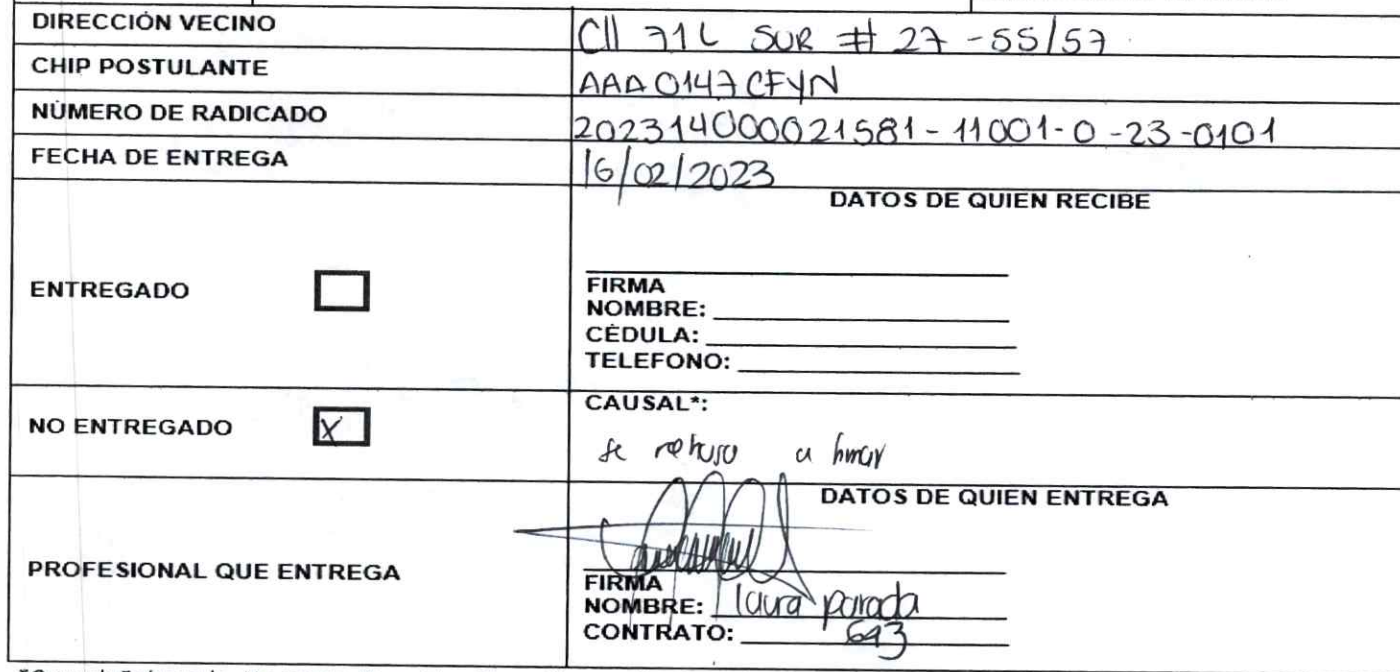 DIRECCIÓN VECINO
Cll 71L SUR # 27 -55/57
CHIP POSTULANTE
AAA0147CFYN
NÚMERO DE RADICADO
202314000021581-11001-0-23-0101
FECHA DE ENTREGA
16/02/2023
DATOS DE QUIEN RECIBE
ENTREGADO
FIRMA
NOMBRE:
CÉDULA:
TELEFONO:
NO ENTREGADO X
CAUSAL*:
se rehuso a firmar
DATOS DE QUIEN ENTREGA
PROFESIONAL QUE ENTREGA
FIRMA
NOMBRE: laura parada
CONTRATO: 643